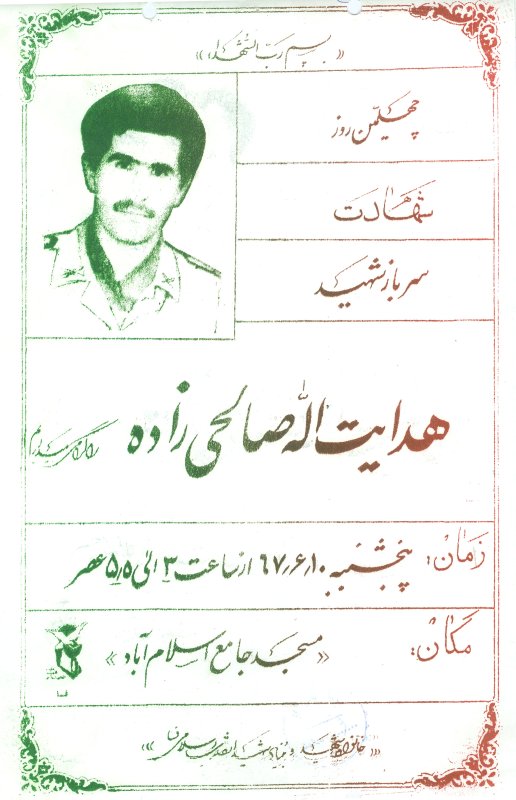 «بسم رب الشهداء»
چهلمین روز
شهادت
سرباز شهید
هدایت اله صالحی زاده
را گرامی میداریم
زمان: پنجشنبه ۶۷٫۶٫۱۰ از ساعت ۳ الی ۵٫۵ عصر
مکان: «مسجد جامع اسلام آباد»
«خانواده شهید و بنیاد شهید انقلاب اسلامی